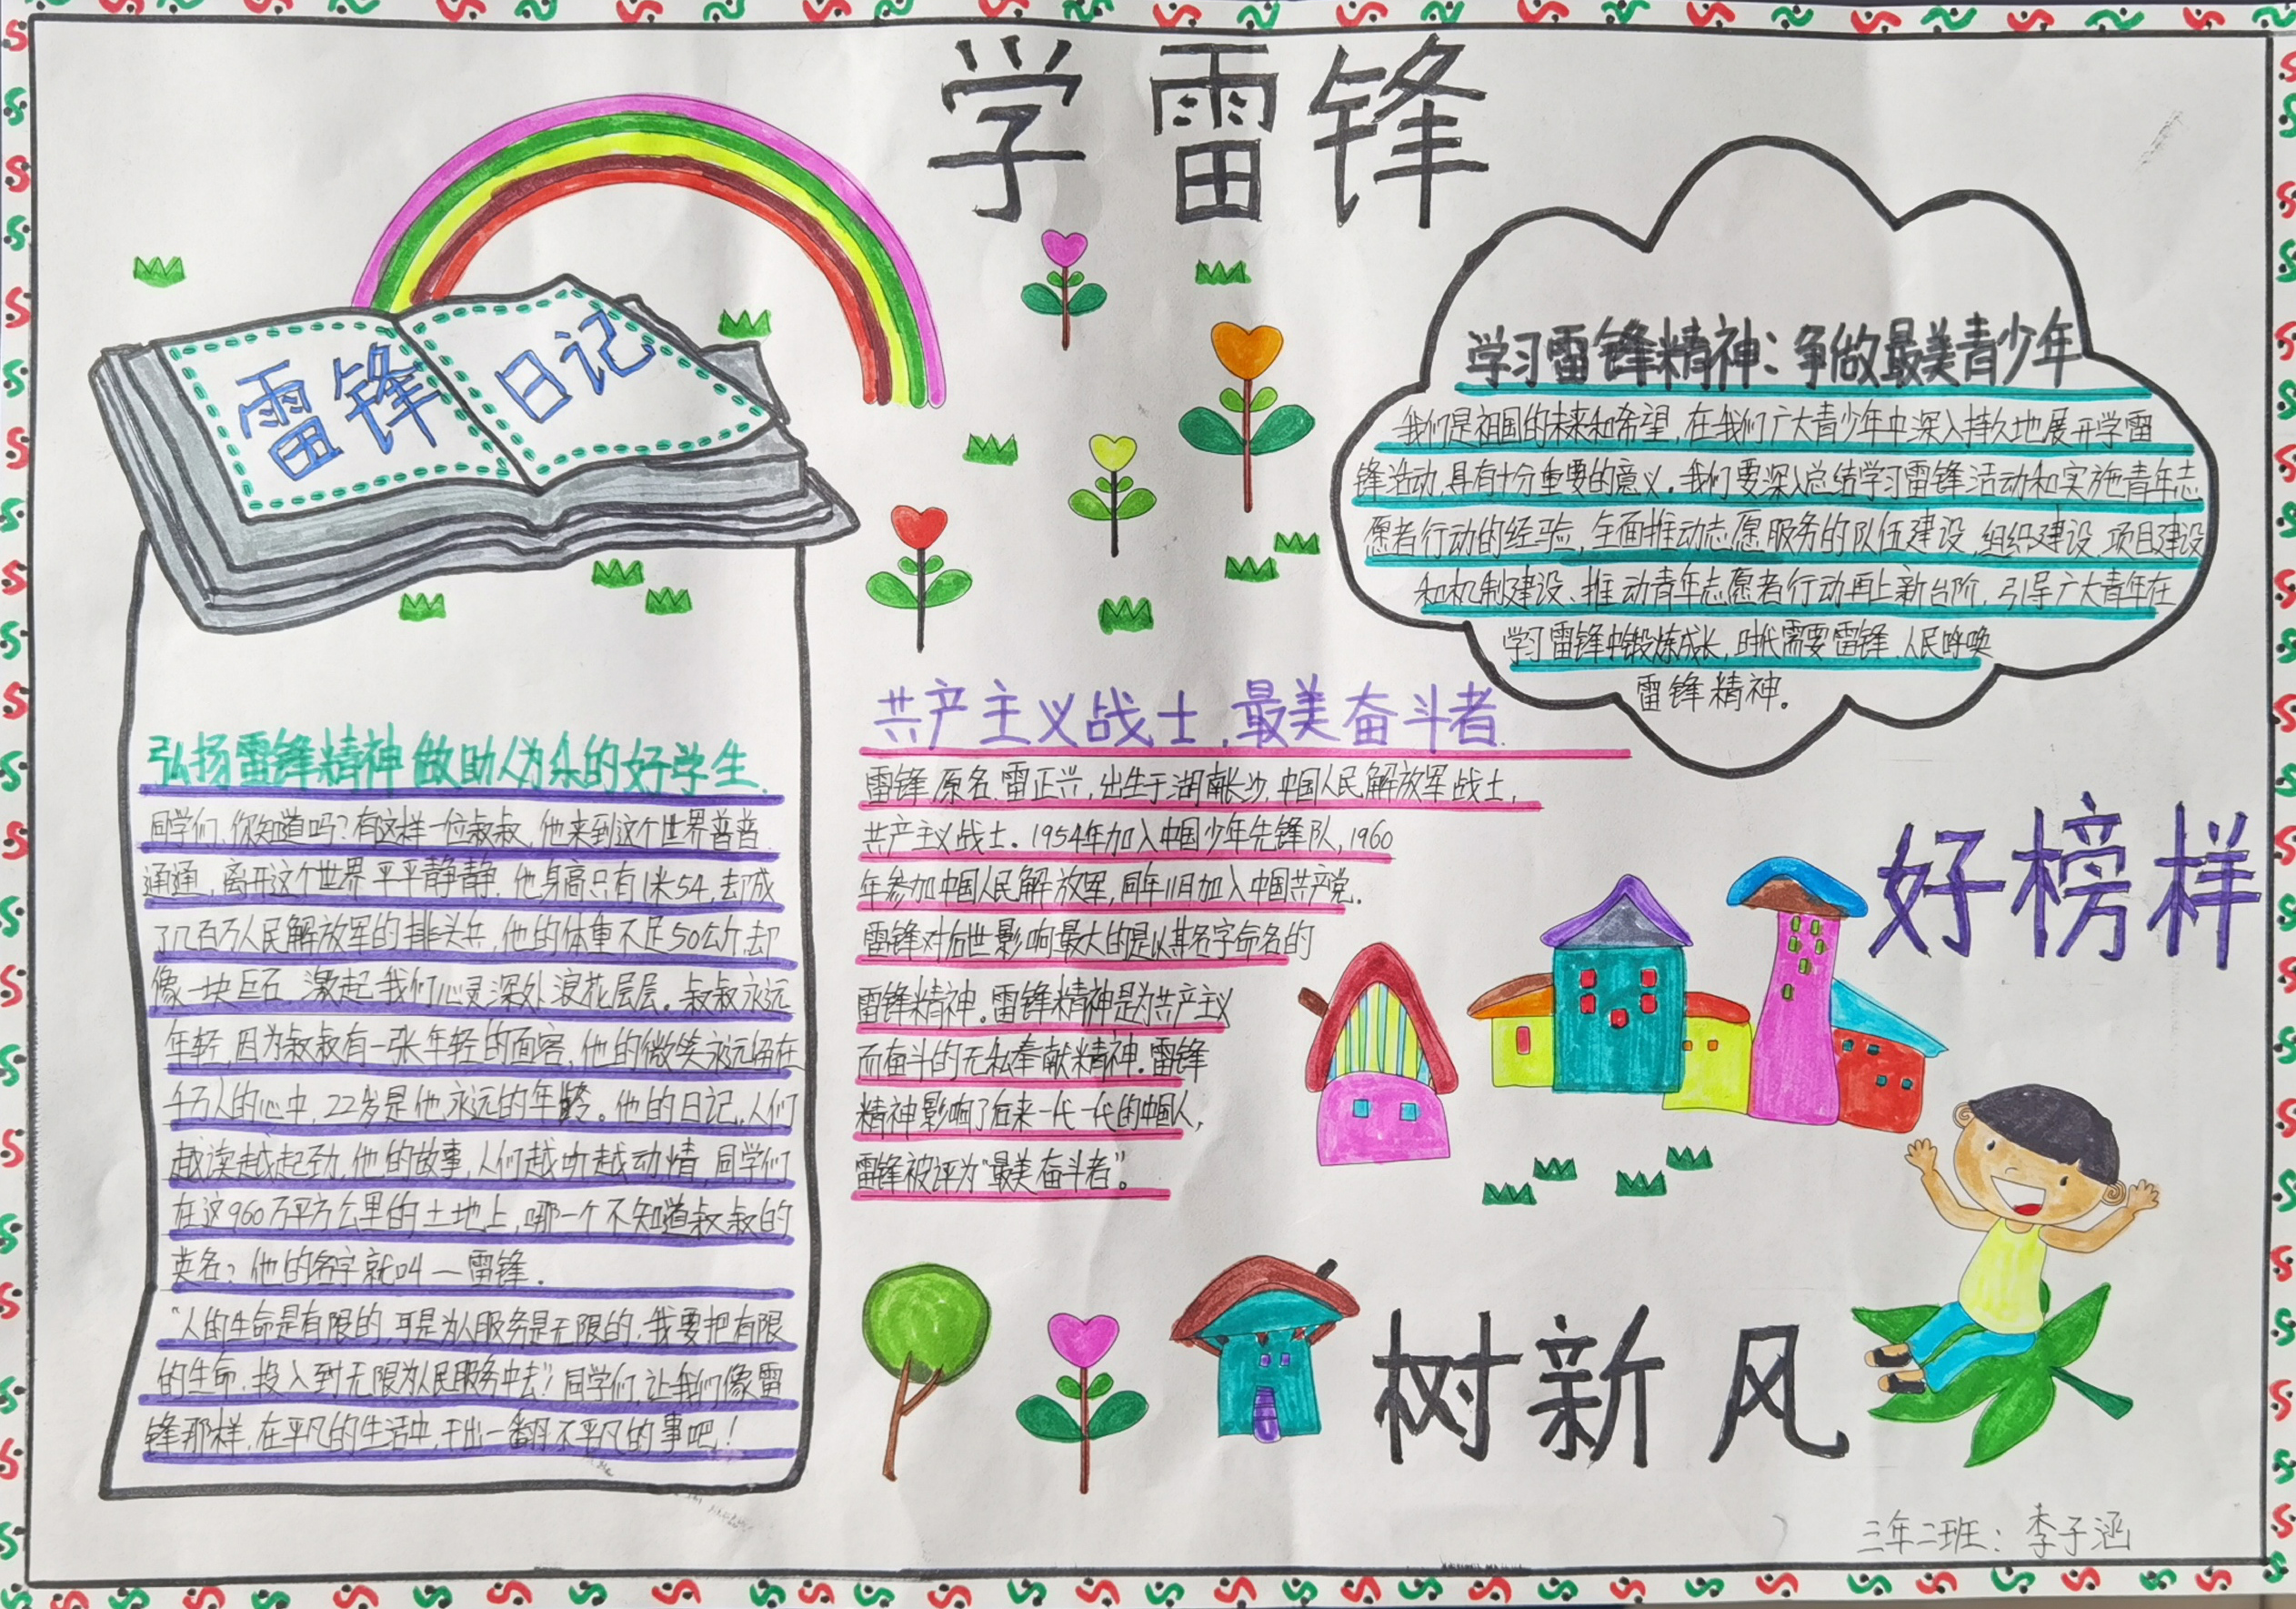 学雷锋
雷锋日记
弘扬雷锋精神做助人为乐的好学生.
同学们,你知道吗?有这样一位叔叔,他来到这个世界普普
通通,离开这个世界平平静静.他身高只有1米54,却成
了几百万人民解放军的排头兵,他的体重不足50公斤,却
像一块巨石,激起我们心灵深处浪花层层。叔叔永远
年轻,因为叔叔有一张年轻的面容,他的微笑永远留在
千万人的心中,22岁是他永远的年龄。他的日记,人们
越读越起劲,他的故事,人们越听越动情,同学们
在这960万平方公里的土地上,哪一个不知道叔叔的
英名?他的名字就叫一雷锋.
"人的生命是有限的,可是为人服务是无限的,我要把有限
的生命,投入到无限为人民服务中去"!同学们,让我们像雷
锋那样,在平凡的生活中,干出一翻不平凡的事吧!
学习雷锋精神:争做最美青少年
我们是祖国的未来和希望,在我们广大青少年中深入持久地展开学雷
锋活动,具有十分重要的意义。我们要深入总结学习雷锋活动和实施青年志
愿者行动的经验,全面推动志愿服务的队伍建设,组织建设,项目建设
和机制建设、推动青年志愿者行动再上新台阶,引导广大青年在
学习雷锋中锻炼成长,时代需要雷锋,人民呼唤
雷锋精神。
共产主义战士,最美奋斗者.
雷锋,原名,雷正兴,出生于湖南长沙,中国人民解放军战士,
共产主义战士。1954年加入中国少年先锋队,1960
年参加中国人民解放军,同年11月加入中国共产党.
雷锋对后世影响最大的是以其名字命名的
雷锋精神。雷锋精神是为共产主义
而奋斗的无私奉献精神.雷锋
精神影响了后来一代一代的中国人,
雷锋被评为"最美奋斗者"。
好榜样
树新风
三年二班:李子涵